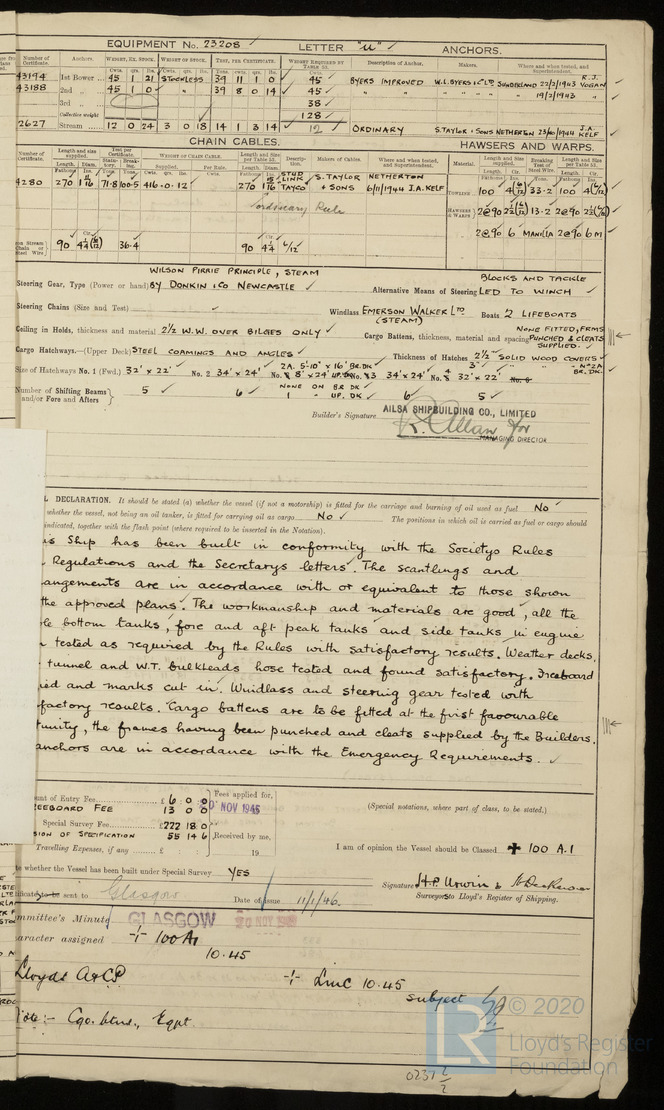 EQUIPMENT No. 23208 LETTER "U" ANCHORS.
Number of Certificate. Anchors. WEIGHT, EX. STOCK. WEIGHT OF STOCK. TEST, PER CERTIFICATE. WEIGHT REQUIRED BY TABLE 53. Description of Anchor. Makers. Where and when tested, and Superintendent.
Cwts. qrs. lbs. Cwts. qrs. lbs. Tons. cwts. qrs. lbs. Cwts.
43194 1st Bower 45 1 21 STOCKLESS 39 11 1 0 45 BYERS IMPROVED W.L. BYERS & Co LTD SUNDERLAND 22/2/1943 R.J. VOGAN
43188 2nd „ 45 1 0 „ 39 8 0 14 45 „ „ „ „ „ 19/2/1943 „
3rd „ 38
Collective weight 128
2627 Stream 12 0 24 3 0 18 14 1 3 14 12 ORDINARY S. TAYLOR & SONS NETHERTON 1944 J.A. KELF
CHAIN CABLES. HAWSERS AND WARPS.
Number of Certificate. Length and size supplied. Test per Certificate. WEIGHT OF CHAIN CABLE. Length and size per Table 53. Description. Makers of Cables. Where and when tested, and Superintendent. Material. Length and size supplied. Breaking Test of Steel Wire. Length and size per Table 53.
4280 270 1 11/16 71·8 100·5 416·0·12 270 1 15/16 STUD LINK TAYCO S. TAYLOR & SONS NETHERTON 6/11/1944 J.A. KELF
TOWLINE 100 33·2 100
ordinary Rule
HAWSERS & WARPS 2@90 13·2 2@90
Stream Chain or Steel Wire 90 36·4 90 6/12
2@90 6 MANILA 2@90 6 M
WILSON PIRRIE PRINCIPLE, STEAM
Steering Gear, Type (Power or hand) BY DONKIN & Co NEWCASTLE Alternative Means of Steering BLOCKS AND TACKLE LED TO WINCH
Steering Chains (Size and Test) Windlass EMERSON WALKER LTD (STEAM) Boats 2 LIFEBOATS
Ceiling in Holds, thickness and material 2½ W.W. OVER BILGES ONLY Cargo Battens, thickness, material and spacing NONE FITTED, FRMS PUNCHED & CLEATS SUPPLIED.
Cargo Hatchways.—(Upper Deck) STEEL COAMINGS AND ANGLES Thickness of Hatches 2½" SOLID WOOD COVERS
3" - No 2A BR. DK.
Size of Hatchways No. 1 (Fwd.) 32' x 22' No. 2 34' x 24' 2A. 5'-10" x 16' BR. DK. 8' x 24' UP. DK No. 3 34' x 24' No. 4 32' x 22' No. 6
Number of Shifting Beams and/or Fore and Afters 5 6 NONE ON BR DK 1 " UP. DK 6 5
Builder's Signature AILSA SHIPBUILDING CO., LIMITED
R. Allan for
MANAGING DIRECTOR
L DECLARATION. It should be stated (a) whether the vessel (if not a motorship) is fitted for the carriage and burning of oil used as fuel No
whether the vessel, not being an oil tanker, is fitted for carrying oil as cargo No The positions in which oil is carried as fuel or cargo should
indicated, together with the flash point (where required to be inserted in the Notation).
is Ship has been built in conformity with the Societys Rules
Regulations and the Secretarys letters. The scantlings and
angements are in accordance with or equivalent to those shown
the approved plans. The workmanship and materials are good, all the
le bottom tanks, fore and aft peak tanks and side tanks in engine
tested as required by the Rules with satisfactory results. Weather decks,
tunnel and W.T. bulkheads hose tested and found satisfactory. Freeboard
ied and marks cut in. Windlass and steering gear tested with
factory results. Cargo battens are to be fitted at the first favourable
tunity, the frames having been punched and cleats supplied by the Builders.
anchors are in accordance with the Emergency Requirements.
ount of Entry Fee £ 6 0 0 Fees applied for,
EEBOARD FEE 13 0 0 NOV 1945 (Special notations, where part of class, to be stated.)
Special Survey Fee £222 18 0
SION OF SPECIFICATION 55 14 6 Received by me,
Travelling Expenses, if any £ 19 I am of opinion the Vessel should be Classed ✠ 100 A.1
whether the Vessel has been built under Special Survey YES
sent to Glasgow Date of issue 11/1/46. Signature H.P. Urwin &
Surveyors to Lloyd's Register of Shipping.
mmittee's Minute GLASGOW 20 NOV 1945
aracter assigned ✠ 100A1
10.45
Lloyds A&CP ✠ LMC 10.45
subject
Note:- Cgo. btns., Eqpt
© 2020
LR Lloyd's Register Foundation
0237 2/2